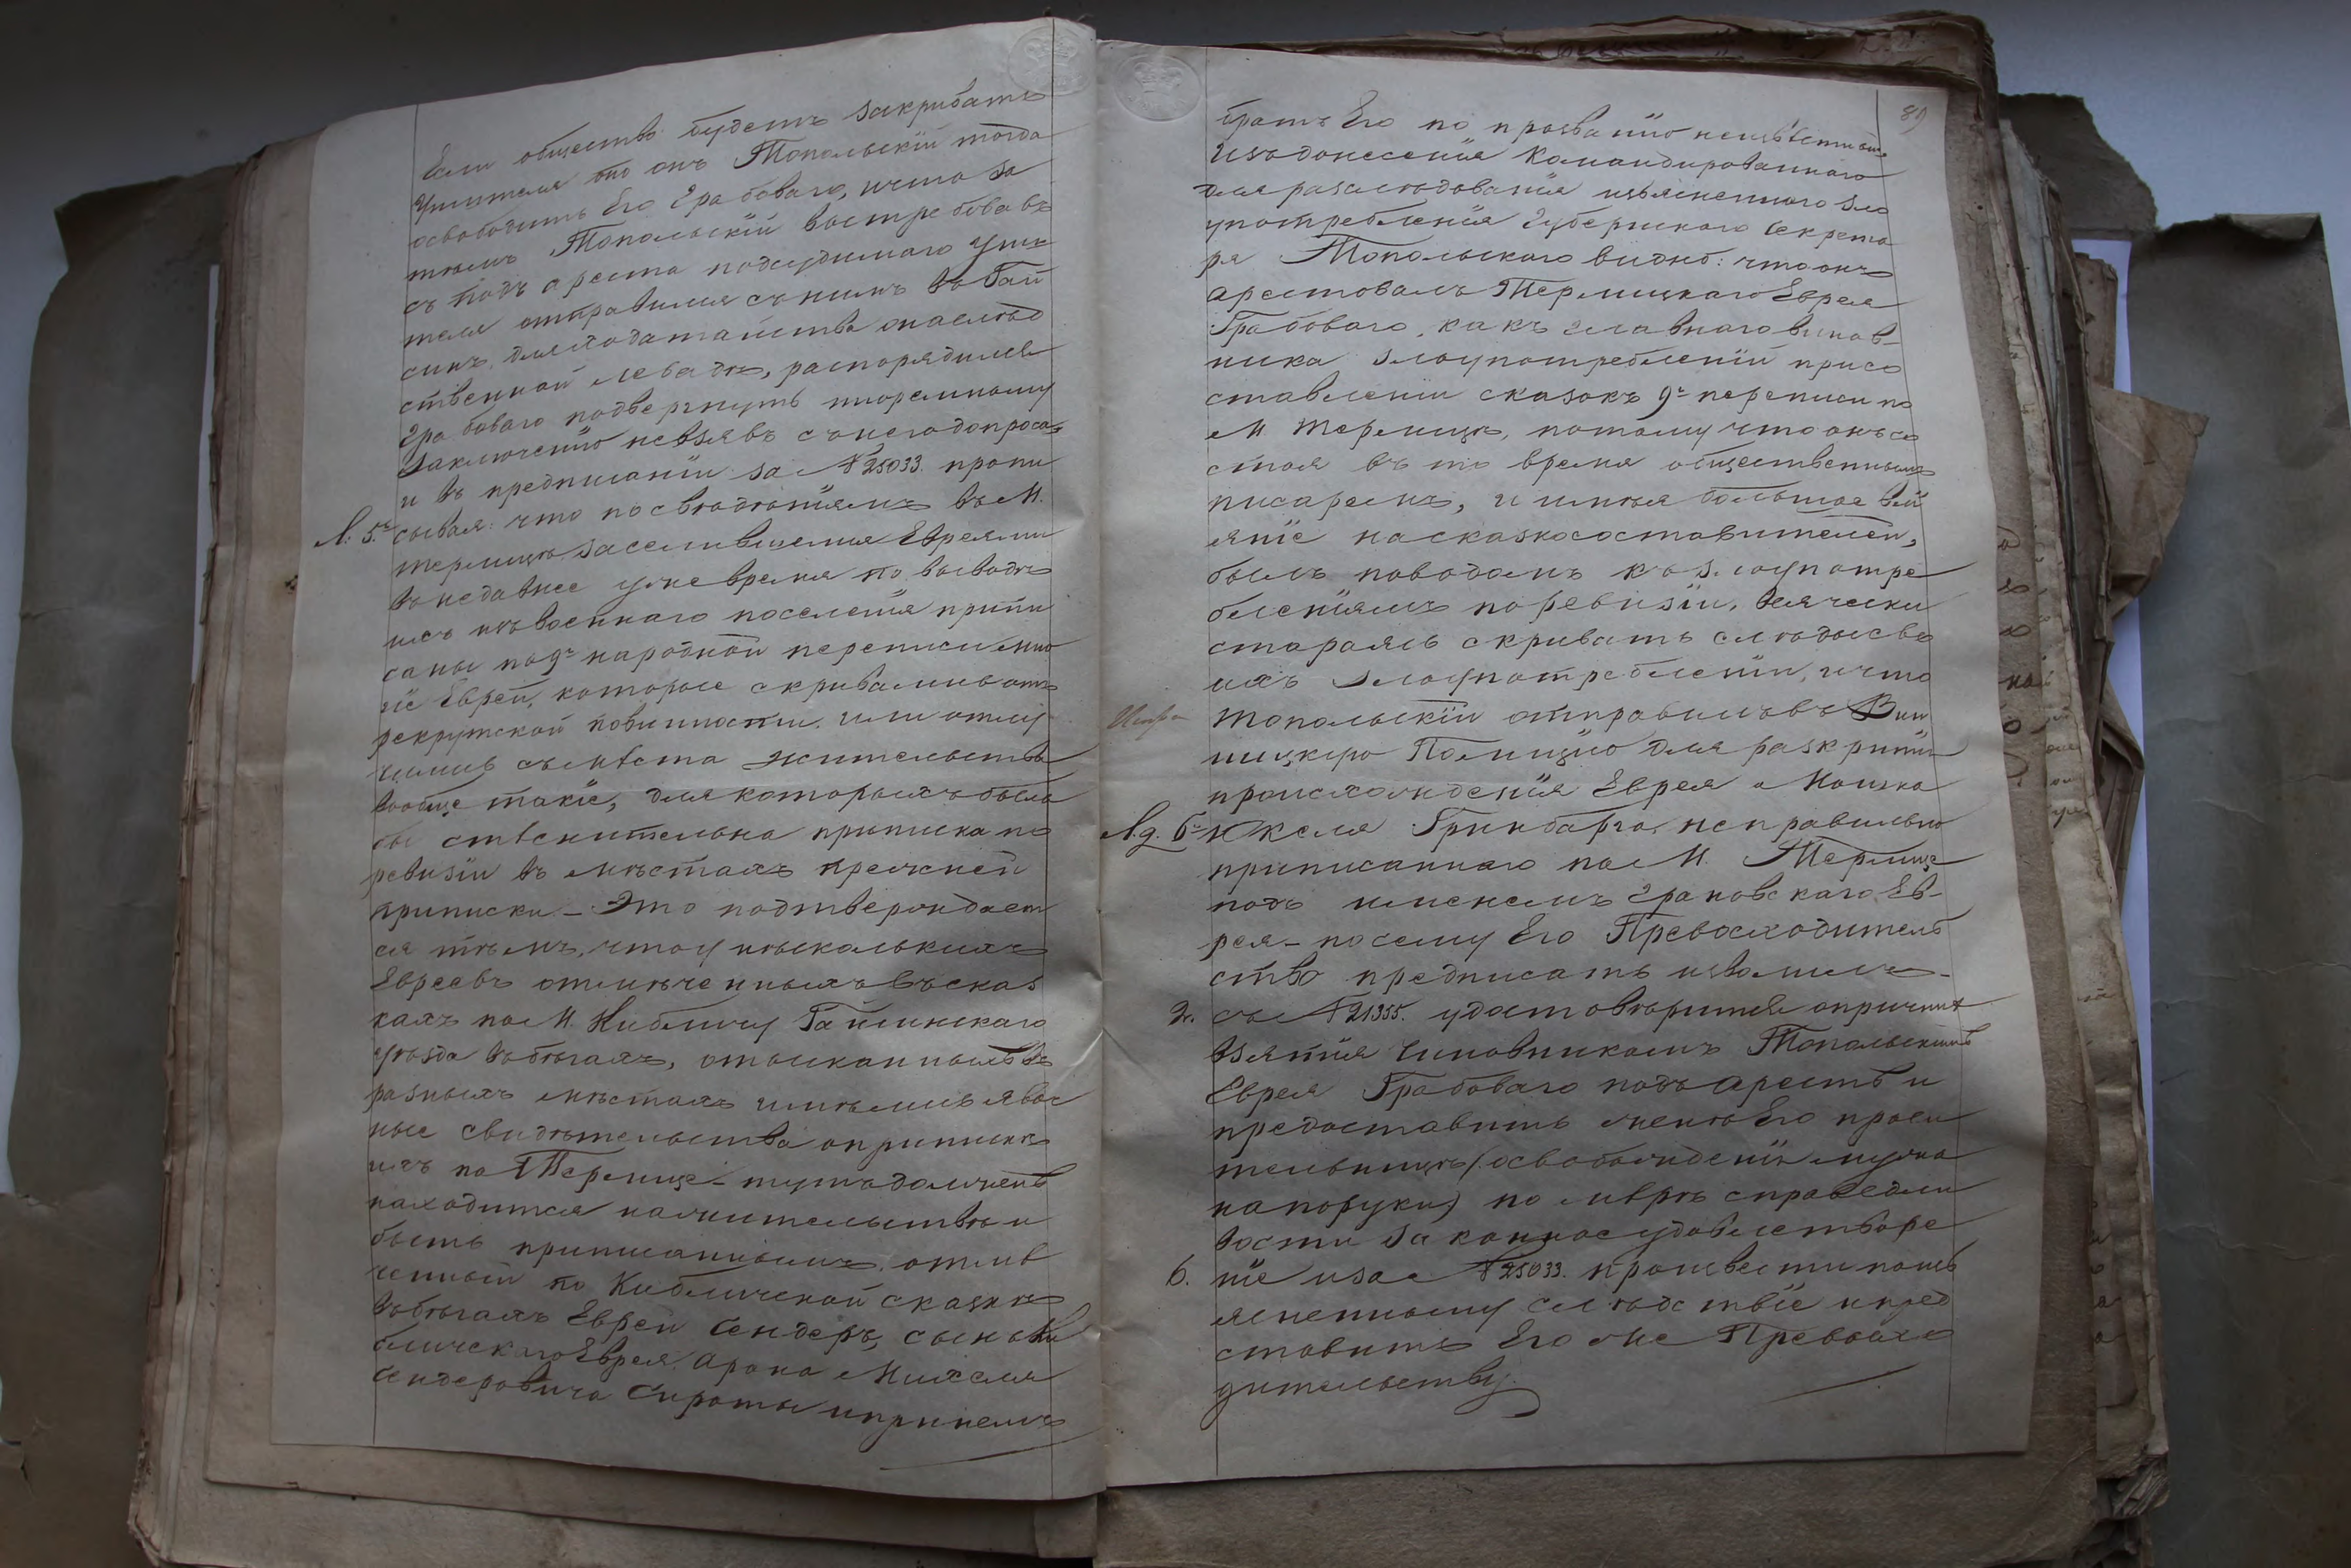 Если общество будетъ закрибать
Учителя то онъ Топольскій тогда
освободитъ Его Грабоваго, и что за
тѣмъ Топольскій вытребовавъ
съ подъ ареста подсудимаго Учи
теля отправился съ нимъ въ Гай
синъ, для ходатайства о наслѣд
ственной левадѣ, распорядился
Грабоваго подвергнуть тюремному
Заключенію невзявъ съ него допроса
и въ предписаніи за № 25033. пропи
Л. 5. сывая: что по свѣдѣніямъ въ М.
Терлицѣ заселившемся Евреями
въ недавнее уже время по выводѣ
ихъ изъ военнаго поселенія припи
саны по 9й народной переписи мно
гіе Евреи, которые скривались отъ
рекрутской повинности, или отлу
чились съ мѣста жительства
вообще такіе, для которыхъ была
бы стѣснительна приписка по
ревизіи въ мѣстахъ прежней
приписки. – Это подтверждает
ся тѣмъ, что у нѣсколькихъ
Евреевъ отмѣченныхъ въ сказ
кахъ по М. Кибличу Гайсинскаго
уѣзда въ бѣгахъ, отысканныхъ въ
разныхъ мѣстахъ имѣлись явоч
ные свидѣтельства о припискѣ
ихъ по Терлице – тутъ долженъ
находится на жительствѣ и
быть приписаннымъ, отмѣ
ченный по Кибличской сказкѣ
въ бѣгахъ Еврей Сендеръ, сынъ Ки
бличскаго Еврея Арона Михеля
Сендеровича Сироты и при немъ
89
братъ Его по прозванію неизвѣстный
Изъ донесенія Командированнаго
для разслѣдованія изъясненнаго зло
употребленія Губернскаго Секрета
ря Топольскаго видно: что онъ
арестовалъ Терлицкаго Еврея
Грабоваго, какъ главнаго винов-
ника злоупотребленій при со
ставленіи сказокъ 9й переписи по
М. Терлицѣ, потому что онъ со
стоя въ то время общественнымъ
писаремъ, и имѣя большое влі
яніе на сказкосоставителей,
былъ поводомъ къ злоупотре
бленіямъ по ревизіи, всячески
стараясь скривать слѣды сво
ихъ злоупотребленій, и что
Топольскій отправилъ въ Вин
ницкую Полицію для раскрытія
происхожденія Еврея Мошка
Л.д. 6. Нкеля Гринбарга, неправильно
приписаннаго по М. Терлице
подъ именемъ Грановскаго Ев-
рея – по сему Его Превосходитель
ство предписать изволилъ –
2. съ № 21355. удостовѣрится о причинѣ
взятія Чиновникомъ Топольскимъ
Еврея Грабоваго подъ арестъ и
предоставить женѣ Его проси
тельницѣ (освобожденіи мужа
на поруки) по мѣрѣ справедли
вости законное удовлетворе
6. ніе и за № 25033. произвести по изъ
ясненному слѣдствіе и пред
ставить Его же Превосхо
дительству.